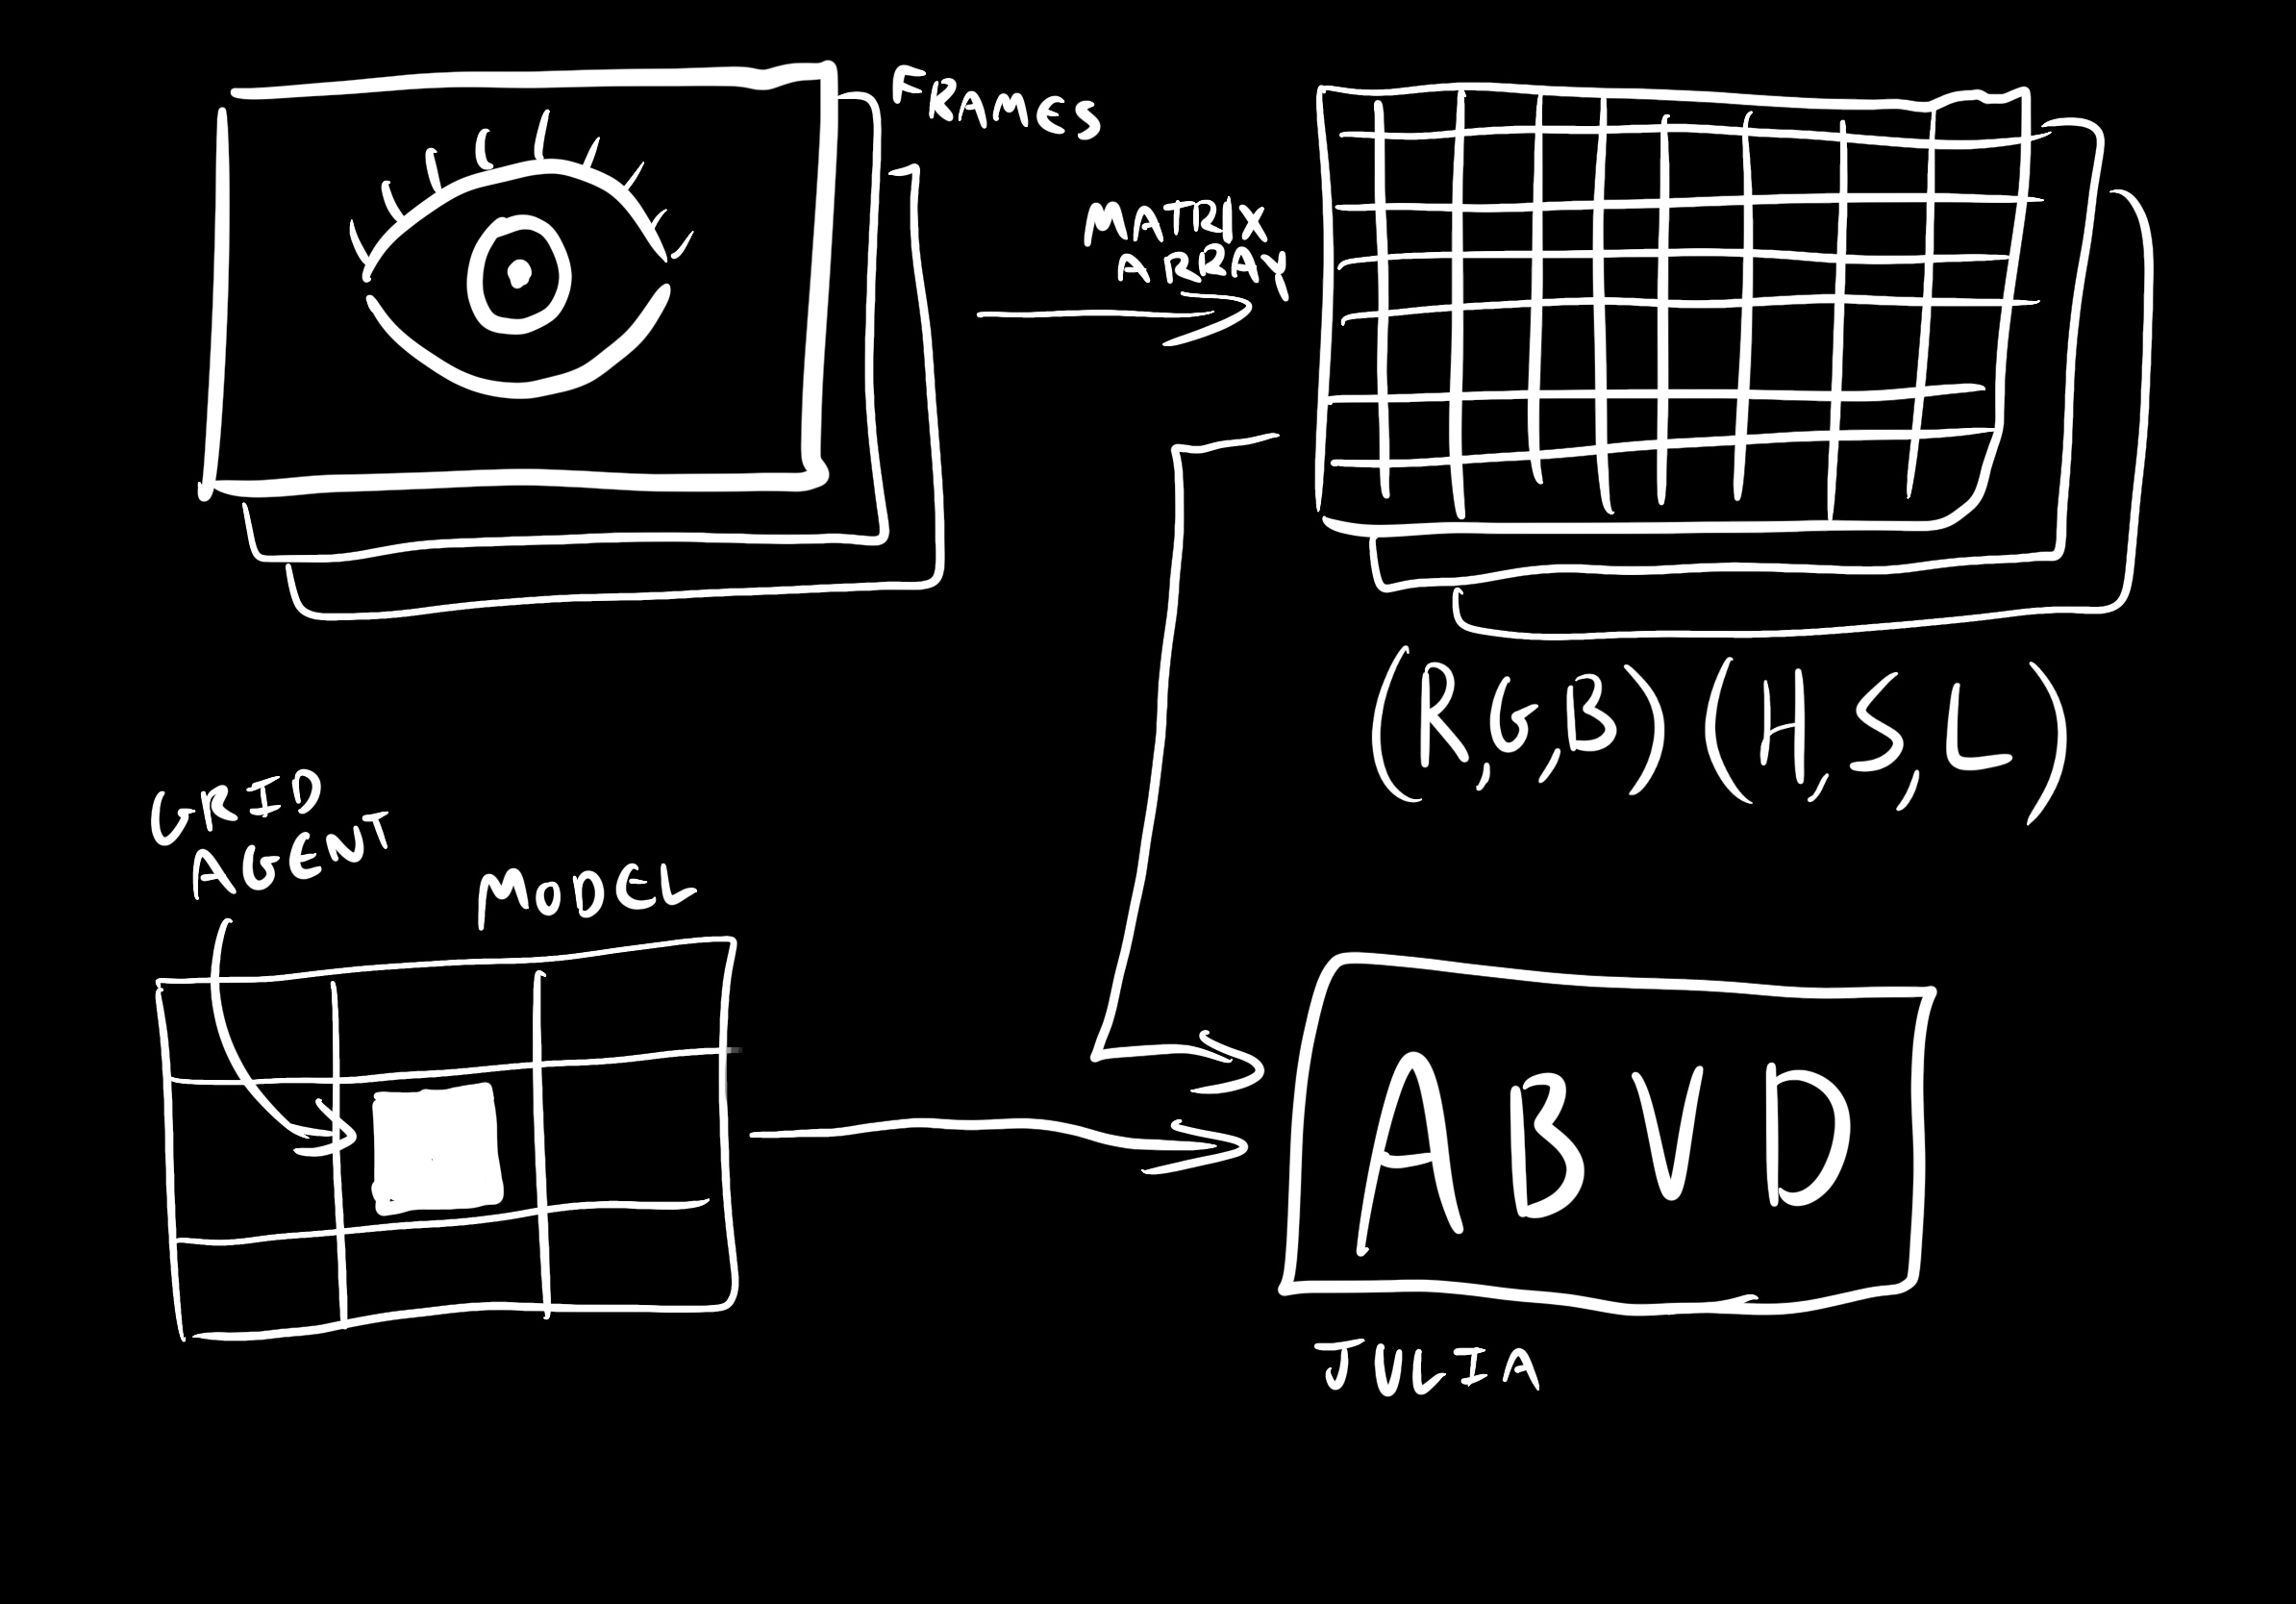 FRAMES
MATRIX
ARRAY
(R,G,B) (H,S,L)
GRID
AGENT
MODEL
ABVD
JULIA